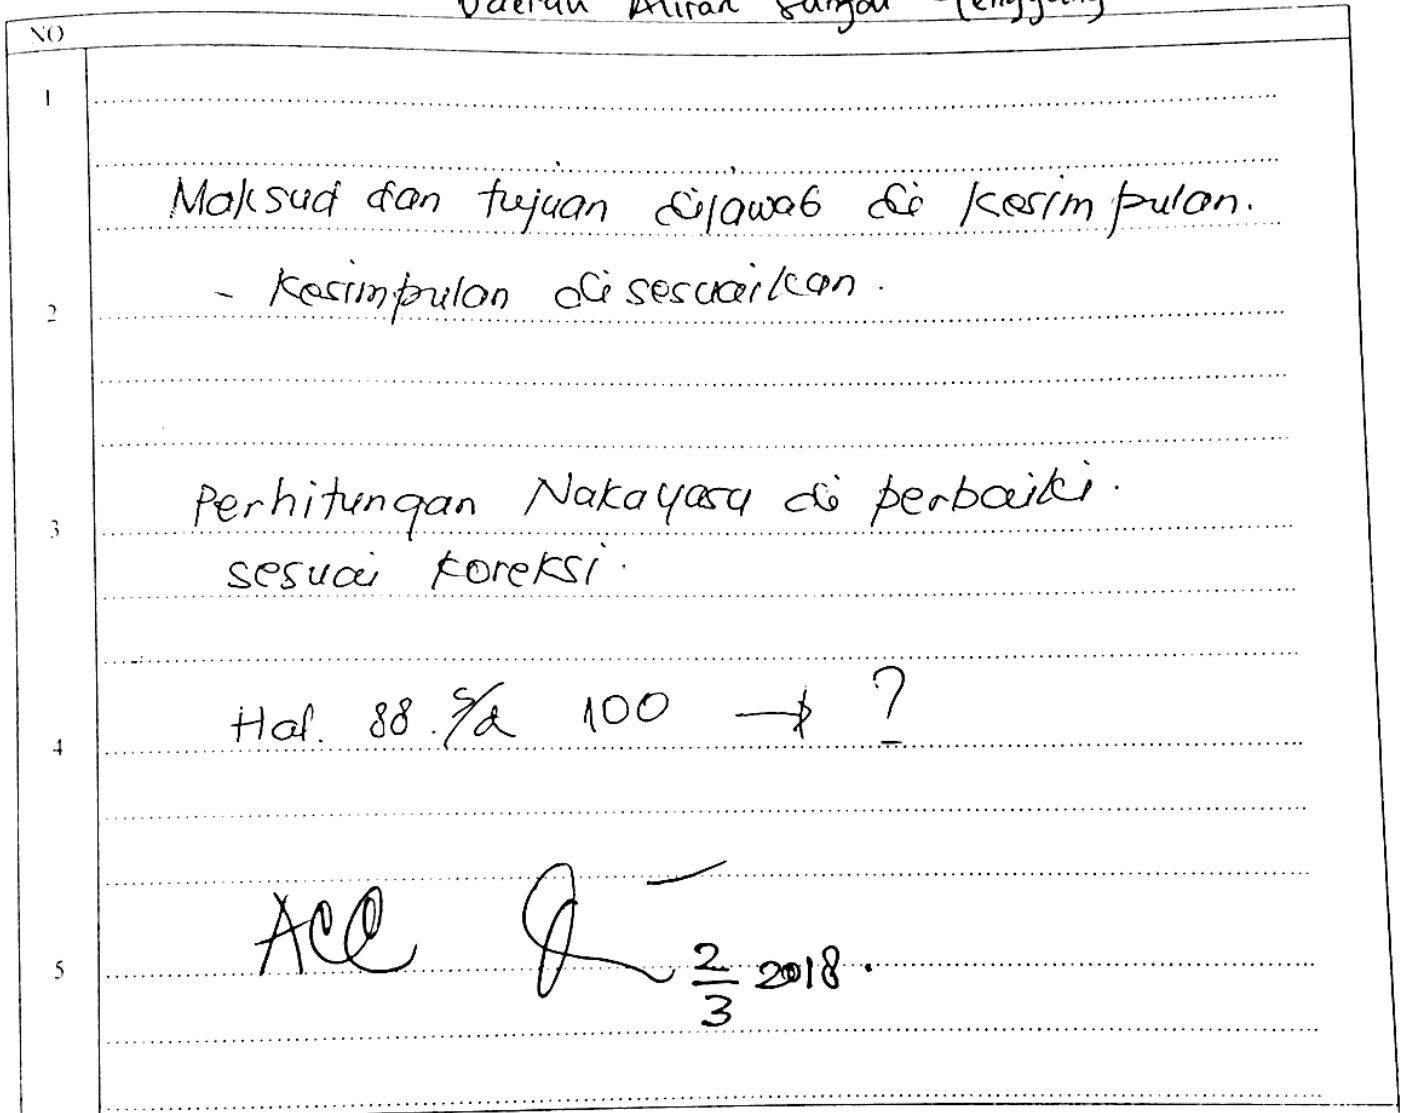 Daerah Aliran Sungai Tenggang
NO
1
Maksud dan tujuan dijawab di kesimpulan.
- kesimpulan disesuaikan.
2
Perhitungan Nakayasu di perbaiki.
3
sesuai koreksi.
Hal. 88 s/d 100 → ?
4
ACC
2/3 2018.
5